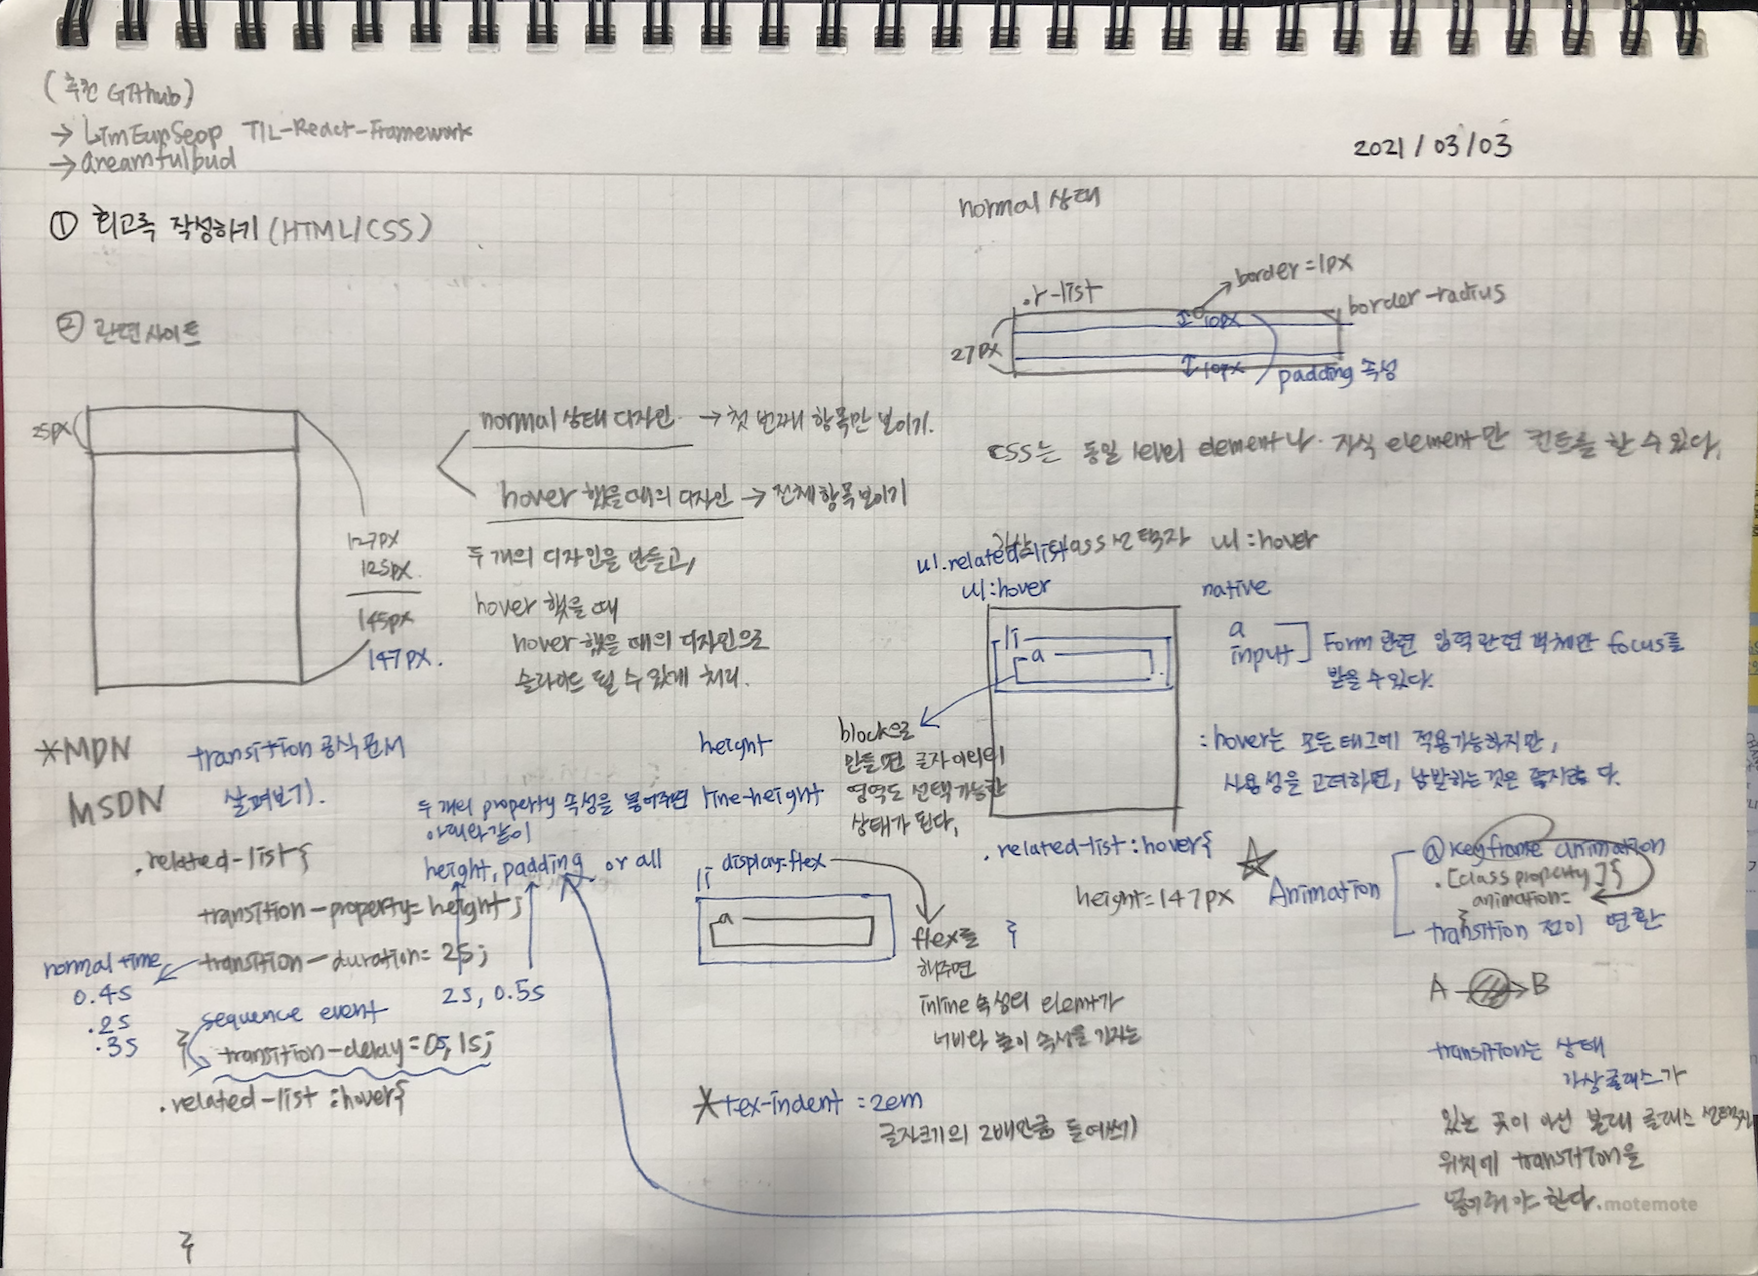 (추천 GitHub)
→ LimEunSeop TIL-React-Framework
→ areamfulbud
2021/03/03
① 회고록 작성하기 (HTML/CSS)
② 관련사이트
25px
127px
125px
145px
147px.
normal 상태 디자인 → 첫 번째 항목만 보이기.
hover 했을때의 디자인 → 전체항목 보이기
두 개의 디자인을 만들고,
hover 했을 때
hover 했을 때의 디자인으로
슬라이드 될 수 있게 처리.
normal 상태
.r-list
border=1px
border-radius
27px
10px
10px
padding 속성
CSS는 동일 level element나 자식 element만 컨트롤 할 수 있다.
가상 class 선택자 ul:hover
ul.related-list
ul:hover
li
a
native
a
input
Form 관련 입력 관련 객체만 focus를
받을 수 있다.
:hover는 모든 태그에 적용가능하지만,
사용성을 고려하면, 남발하는 것은 다.
block으로
만들면 글자 이외의
영역도 선택가능한
상태가 된다.
*MDN
MSDN
transition 공식문서
살펴보기.
height
line-height
두 개의 property 속성을 넣어주면
아래와 같이
height, padding or all
.related-list{
transition-property=height;
transition-duration=2s;
normal time
0.4s
.2s
.3s
2s, 0.5s
sequence event
transition-delay=0s, 1s;
}
.related-list :hover{
}
li display=flex
a
flex를
해주면
inline 속성의 elemt가
너비와 높이 속성을 가지는
.related-list:hover{
height=147px
}
☆ Animation
@keyframe animation
.[class property]{
animation=
}
transition 전이 변환
A → B
transition는 상태
가상클래스가
있는 곳이 아닌 본래 클래스 선택자
위치에 transition을
넣어줘야 한다.
*tex-indent=2em
글자크기의 2배만큼 들여쓰기
motemote